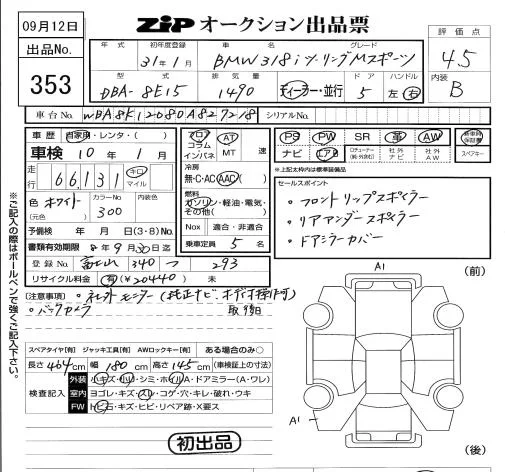 09月12日
出品No.
353
ZIP オークション出品票
評価点
4.5
内装
B
年式
初年度登録
31年1月
車名
グレード
BMW 318i ツーリングMスポーツ
型式
DBA-8E15
排気量
1490
ディーラー・並行
ドア
5
ハンドル
左・右
車台No.
WBA8E12080A827218
シリアルNo.
車歴
自家用・レンタ・( )
車検 10年1月
走行 66,131 キロ マイル
色(元色) ホワイト
カラーNo. 300
内装色
予備検 年 月 日(3・8)No.
書類有効期限 8年9月30日迄
登録No. 富士山 340 つ 293
リサイクル料金 有(¥20440) 未
フロア
コラム
インパネ
AT
MT
速
冷房
無・C・AC・AAC
燃料
ガソリン・軽油・電気・その他( )
Nox 適合・非適合
乗車定員 5 名
PS
PW
SR
革
AW
新車時保証書
ナビ
エアB
社外ナビ
社外AW
スペアキー
*上記太枠内は標準装備品
セールスポイント
・フロントリップスポイラー
・リアアンダースポイラー
・ドアミラーカバー
※ご記入の際はボールペンで強くご記入下さい。
(注意事項)
・バックカメラ
スペアタイヤ[有] ジャッキ工具[有] AWロックキー[有] ある場合のみ○
長さ 464 cm 幅 180 cm 高さ 145 cm (車検証上の寸法)
検査記入
外装 小キズ・小凹・シミ・ホイルA・ドアミラー(A・ワレ)
室内 ヨゴレ・キズ・スレ・コゲ・穴・キレ・破れ・ウキ
FW トビ石・キズ・ヒビ・リペア跡・X要ス
初出品
(前)
A1
A1
(後)